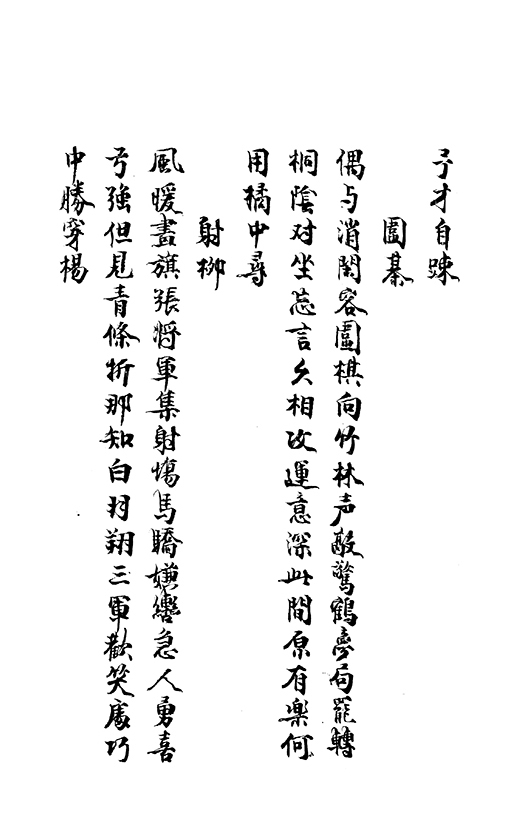 予才自踈
圍棊
偶与消閑客圍棋向竹林声敲驚鶴夢局罷轉
桐陰对坐忘言久相攻運意深此間原有楽何
用橘中尋
射柳
風暖畫旗張将軍集射場馬驕嫌轡急人勇喜
弓強但見青條折那知白羽翔三軍歡笑處巧
中勝穿楊